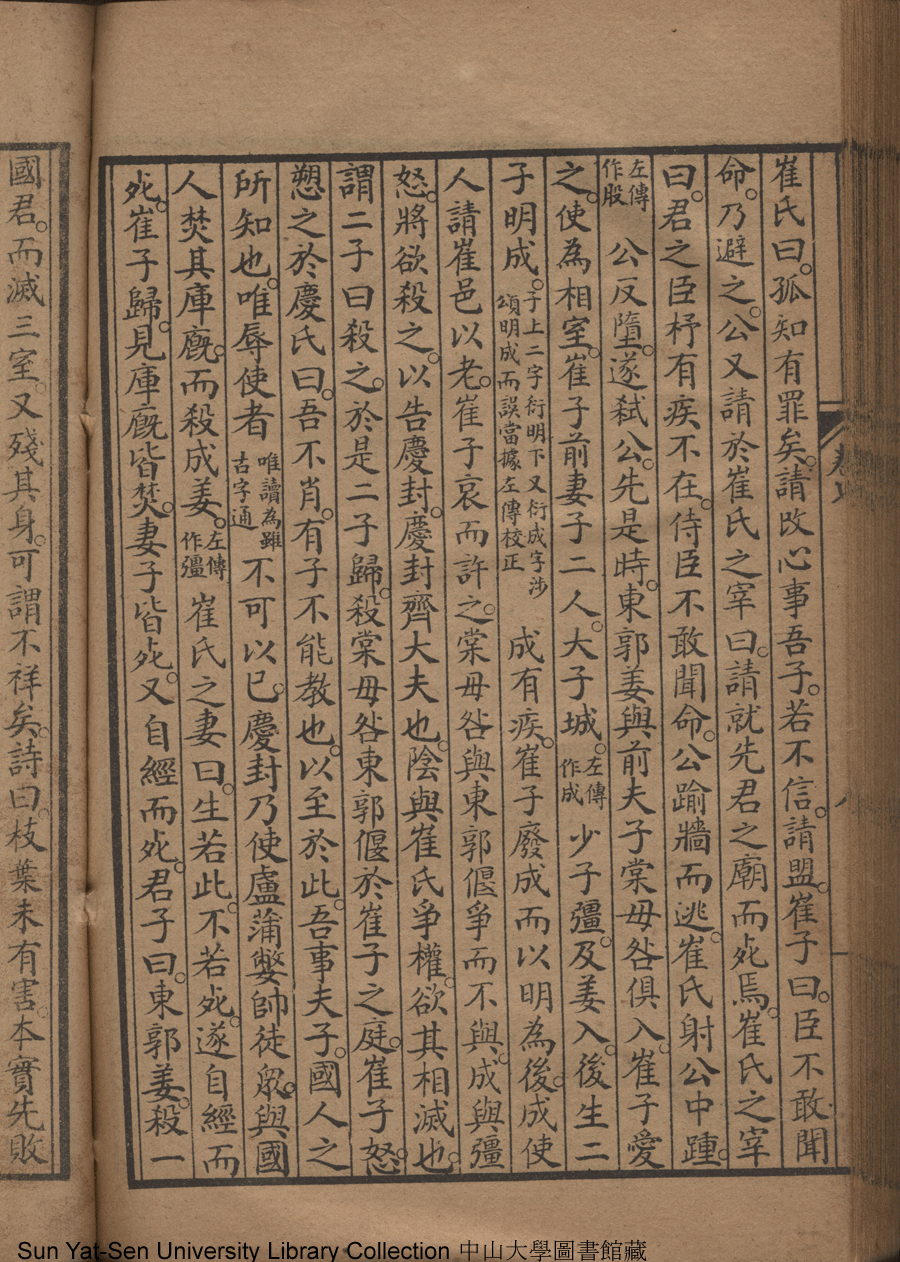 崔氏曰。孤知有罪矣。請改心事吾子。若不信。請盟。崔子曰。臣不敢聞
命。乃避之。公又請於崔氏之宰曰。請就先君之廟而死焉。崔氏之宰
曰。君之臣杼有疾不在。侍臣不敢聞命。公踰牆而逃。崔氏射公中踵。
左傳作股 公反墮。遂弒公。先是時。東郭姜與前夫子棠毋咎俱入。崔子愛
之。使為相室。崔子前妻子二人。大子城。左傳作成 少子彊。及姜入。後生二
子明成。子上二字衍明下又衍成字涉頌明成而誤當據左傳校正 成有疾。崔子廢成而以明為後。成使
人請崔邑以老。崔子哀而許之。棠毋咎與東郭偃爭而不與。成與彊
怒。將欲殺之。以告慶封。慶封齊大夫也。陰與崔氏爭權。欲其相滅也。
謂二子曰殺之。於是二子歸。殺棠毋咎東郭偃於崔子之庭。崔子怒。
愬之於慶氏曰。吾不肖。有子不能教也。以至於此。吾事夫子。國人之
所知也。唯辱使者 唯讀為雖古字通 不可以已。慶封乃使盧蒲嫳帥徒眾。與國
人焚其庫廄。而殺成姜。左傳作彊 崔氏之妻曰。生若此。不若死。遂自經而
死。崔子歸。見庫廄皆焚。妻子皆死。又自經而死。君子曰。東郭姜。殺一
國君。而滅三室。又殘其身。可謂不祥矣。詩曰。枝葉未有害。本實先敗
Sun Yat-Sen University Library Collection 中山大學圖書館藏